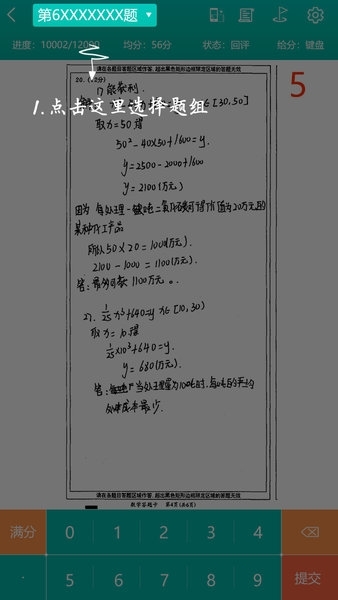 第6XXXXXXX题
进度：10002/12000 均分：56分 状态：回评 给分：键盘
请在各题目答题区域作答，超出黑色矩形边框限定区域的答题无效
20.（12分）
5
1.点击这里选择题组
∈[30,50]
取x=50得
50²-40×50+1600=y.
y=2500-2000+1600
y=2100(万元)
因为 每处理一吨二氧化碳可得价值为20万元的
某种化工产品
所以50×20=1000(万元).
2100-1000=1100(万元).
答：最多亏损1100万元。
2). 1/25 x³+640=y x∈[10,30)
取x=10得
1/25×10³+640=y.
y=680(万元).
答：当处理量为10吨时，每吨的平均
处理成本最少.
请在各题目答题区域作答，超出黑色矩形边框限定区域的答题无效
数学答题卡 第4页(共6页)
满分 0 1 2 3 4
· 5 6 7 8 9 提交